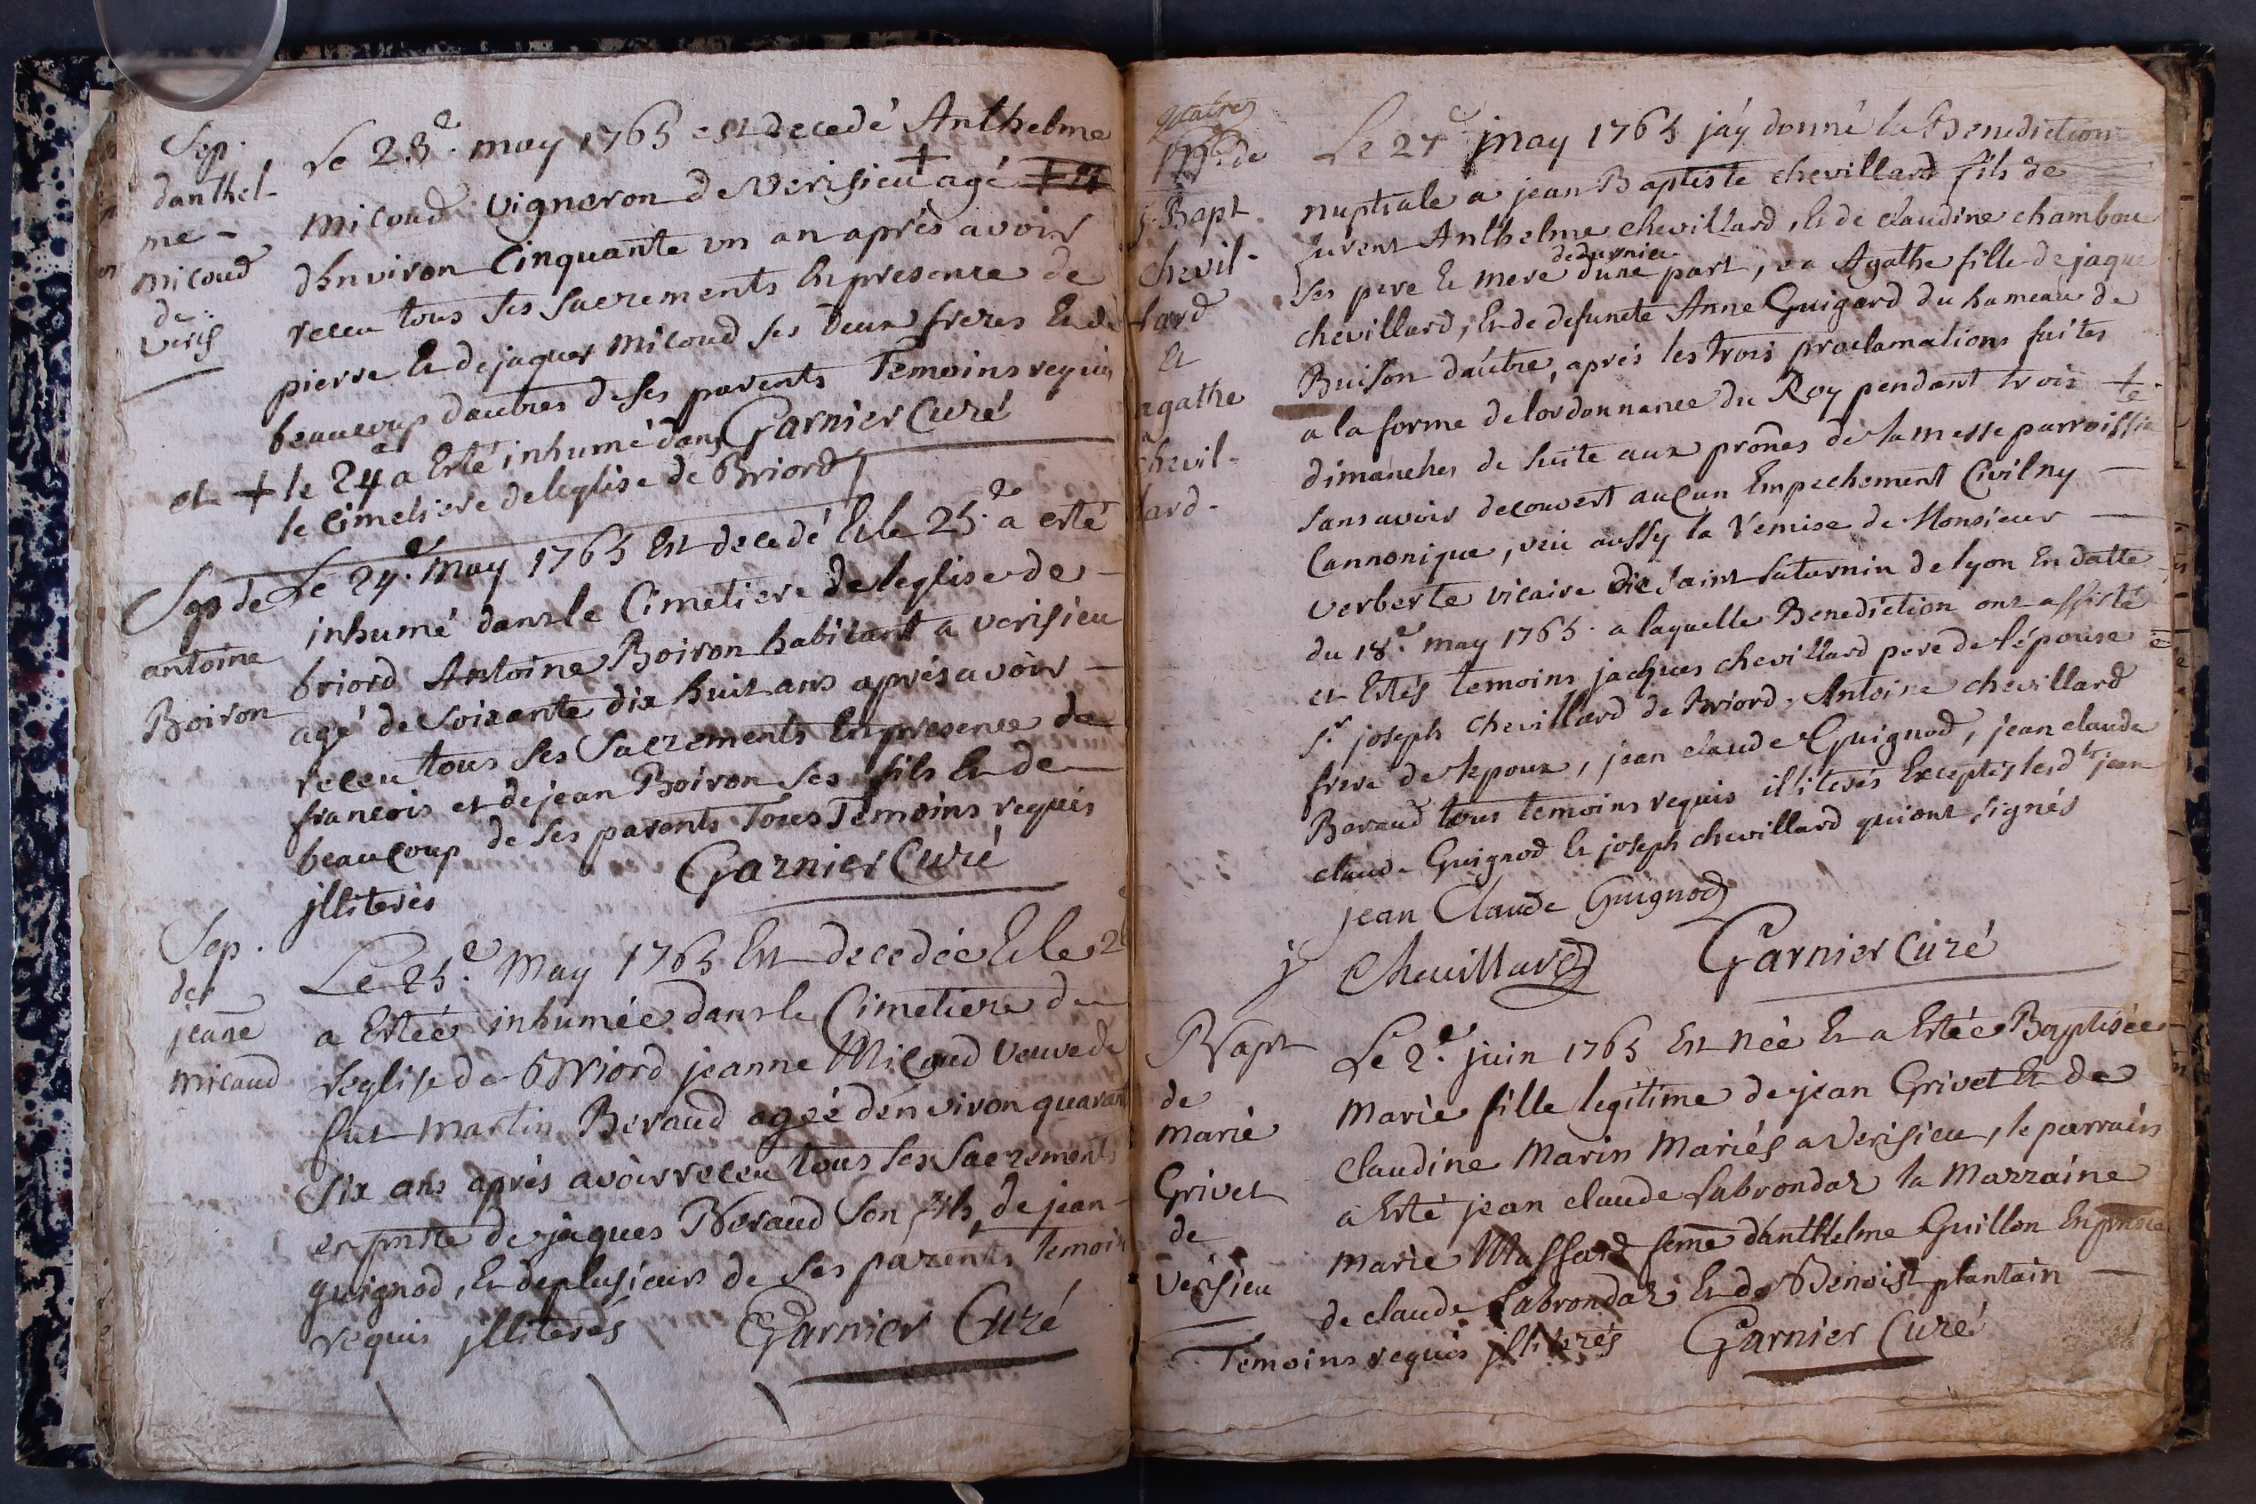 Sep.
danthel-
me-
micoud
de
veris
Le 23.e may 1765 est decedé Anthelme
micoud vigneron de verisieu + agé
d'Environ Cinquante un an aprés avoir
receu tous ses sacrements En presence de
pierre Et de jaques micoud ses deux freres Et de
beaucoup dautres de ses parents Temoins requis
et + le 24e a Esté inhumé dans Garnier Curé
le Cimetiere de leglise de Briord
Sep de
antoine
Boiron
Le 24.e may 1765 Est decedé Et le 25.e a esté
inhumé dans le Cimetiere de leglise de
briord Antoine Boiron habitant a verisieu
agé de soixante dix huit ans aprés avoir
receu tous ses Sacrements En presence de
francois et de jean Boiron ses fils Et de
beaucoup de ses parents Tous Temoins requis
jlliterés Garnier Curé
Sep.
de
jeane
micoud
Le 25.e May 1765 Est decedée Et le 2
a Estée inhumée dans le Cimetiere de
leglise de Briord jeanne Micoud veuve de
fut martin Beraud agée d'environ quarant
Six ans aprés avoir receu tous ses Sacrements
en pnste de jaques Beraud Son fils, de jean
guignod, Et de plusieurs de ses parents temoins
requis jlliterés Garnier Curé
quatre
de
j. Bapt.
chevil-
lard
Et
agathe
chevil-
lard.
Le 27e may 1765 jáy donné la Benediction
nuptiale a jean Baptiste chevillard fils de
furent Anthelme chevillard, Et de claudine chambou
de durnieu
ses pere Et mere dune part, Et Agathe fille de jaque
chevillard, Et de defuncte Anne Guigard du hameau de
Buison dáutre, aprés les trois proclamations faites
a la forme de lordonnance du Roy pendant trois
dimanches de suite aux prônes de la messe parroissia
sans avoir decouvert aucun Empechement Civil ny
Cannonique, veu aussy la Remise de Monsieur
verberte vicaire de saint saturnin de lyon En datte
du 18.e may 1765. a laquelle Benediction ont assisté
et Estés temoins jacques chevillard pere de lépouse
sr joseph chevillard de Briord, Antoine chevillard
frere de lepoux, jean claude Guignod, jean claude
Beraud tous temoins requis illiterés Exceptés lesd.ts jean
claude Guignod Et joseph chevillard qui ont signés
jean Claude Guignod
j Chevillard Garnier Curé
Bapt
de
marie
Grivet
de
verisieu
Le 2.e juin 1765 Est née Et a Estée Baptisée
marie fille legitime de jean Grivet Et de
claudine Marin Mariés a Verisieu, le parrain
a Esté jean claude Labrondaz la Marraine
marie Massard feme danthelme Guillon En pnste
de claude Labrondaz Et de Benoist plantain
Temoins requis jlliterés Garnier Curé